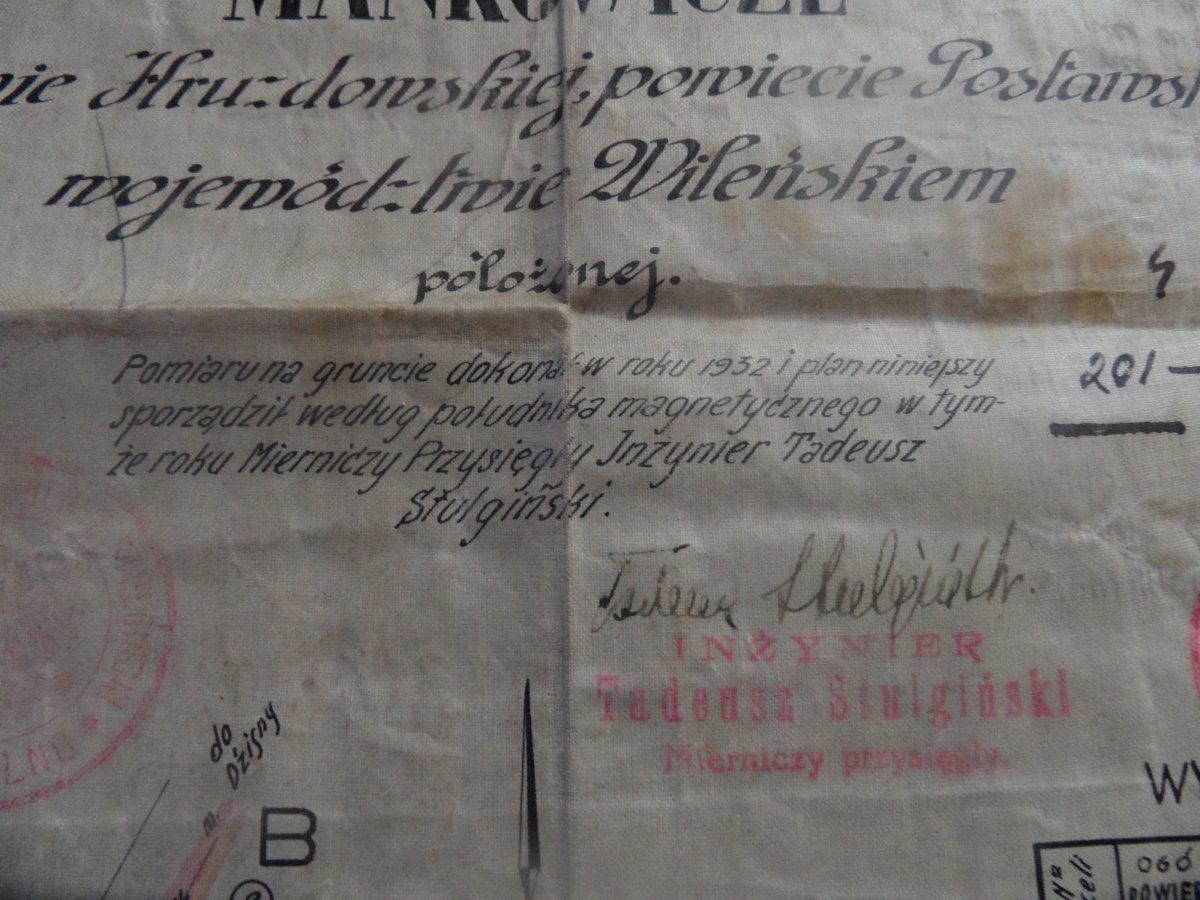 MAŃKOWICZE
nie Hruzdowskiej, powiecie Postawsk
województwie Wileńskiem
położonej.
Pomiaru na gruncie dokonał w roku 1932 i plan niniejszy
sporządził według południka magnetycznego w tym-
że roku Mierniczy Przysięgły Inżynier Tadeusz
Stulgiński.
201-
Tadeusz Stulgiński
INŻYNIER
Tadeusz Stulgiński
Mierniczy przysięgły.
do
Dźisny
m.
B
WY
Nº
celi
OGÓ
POWIER